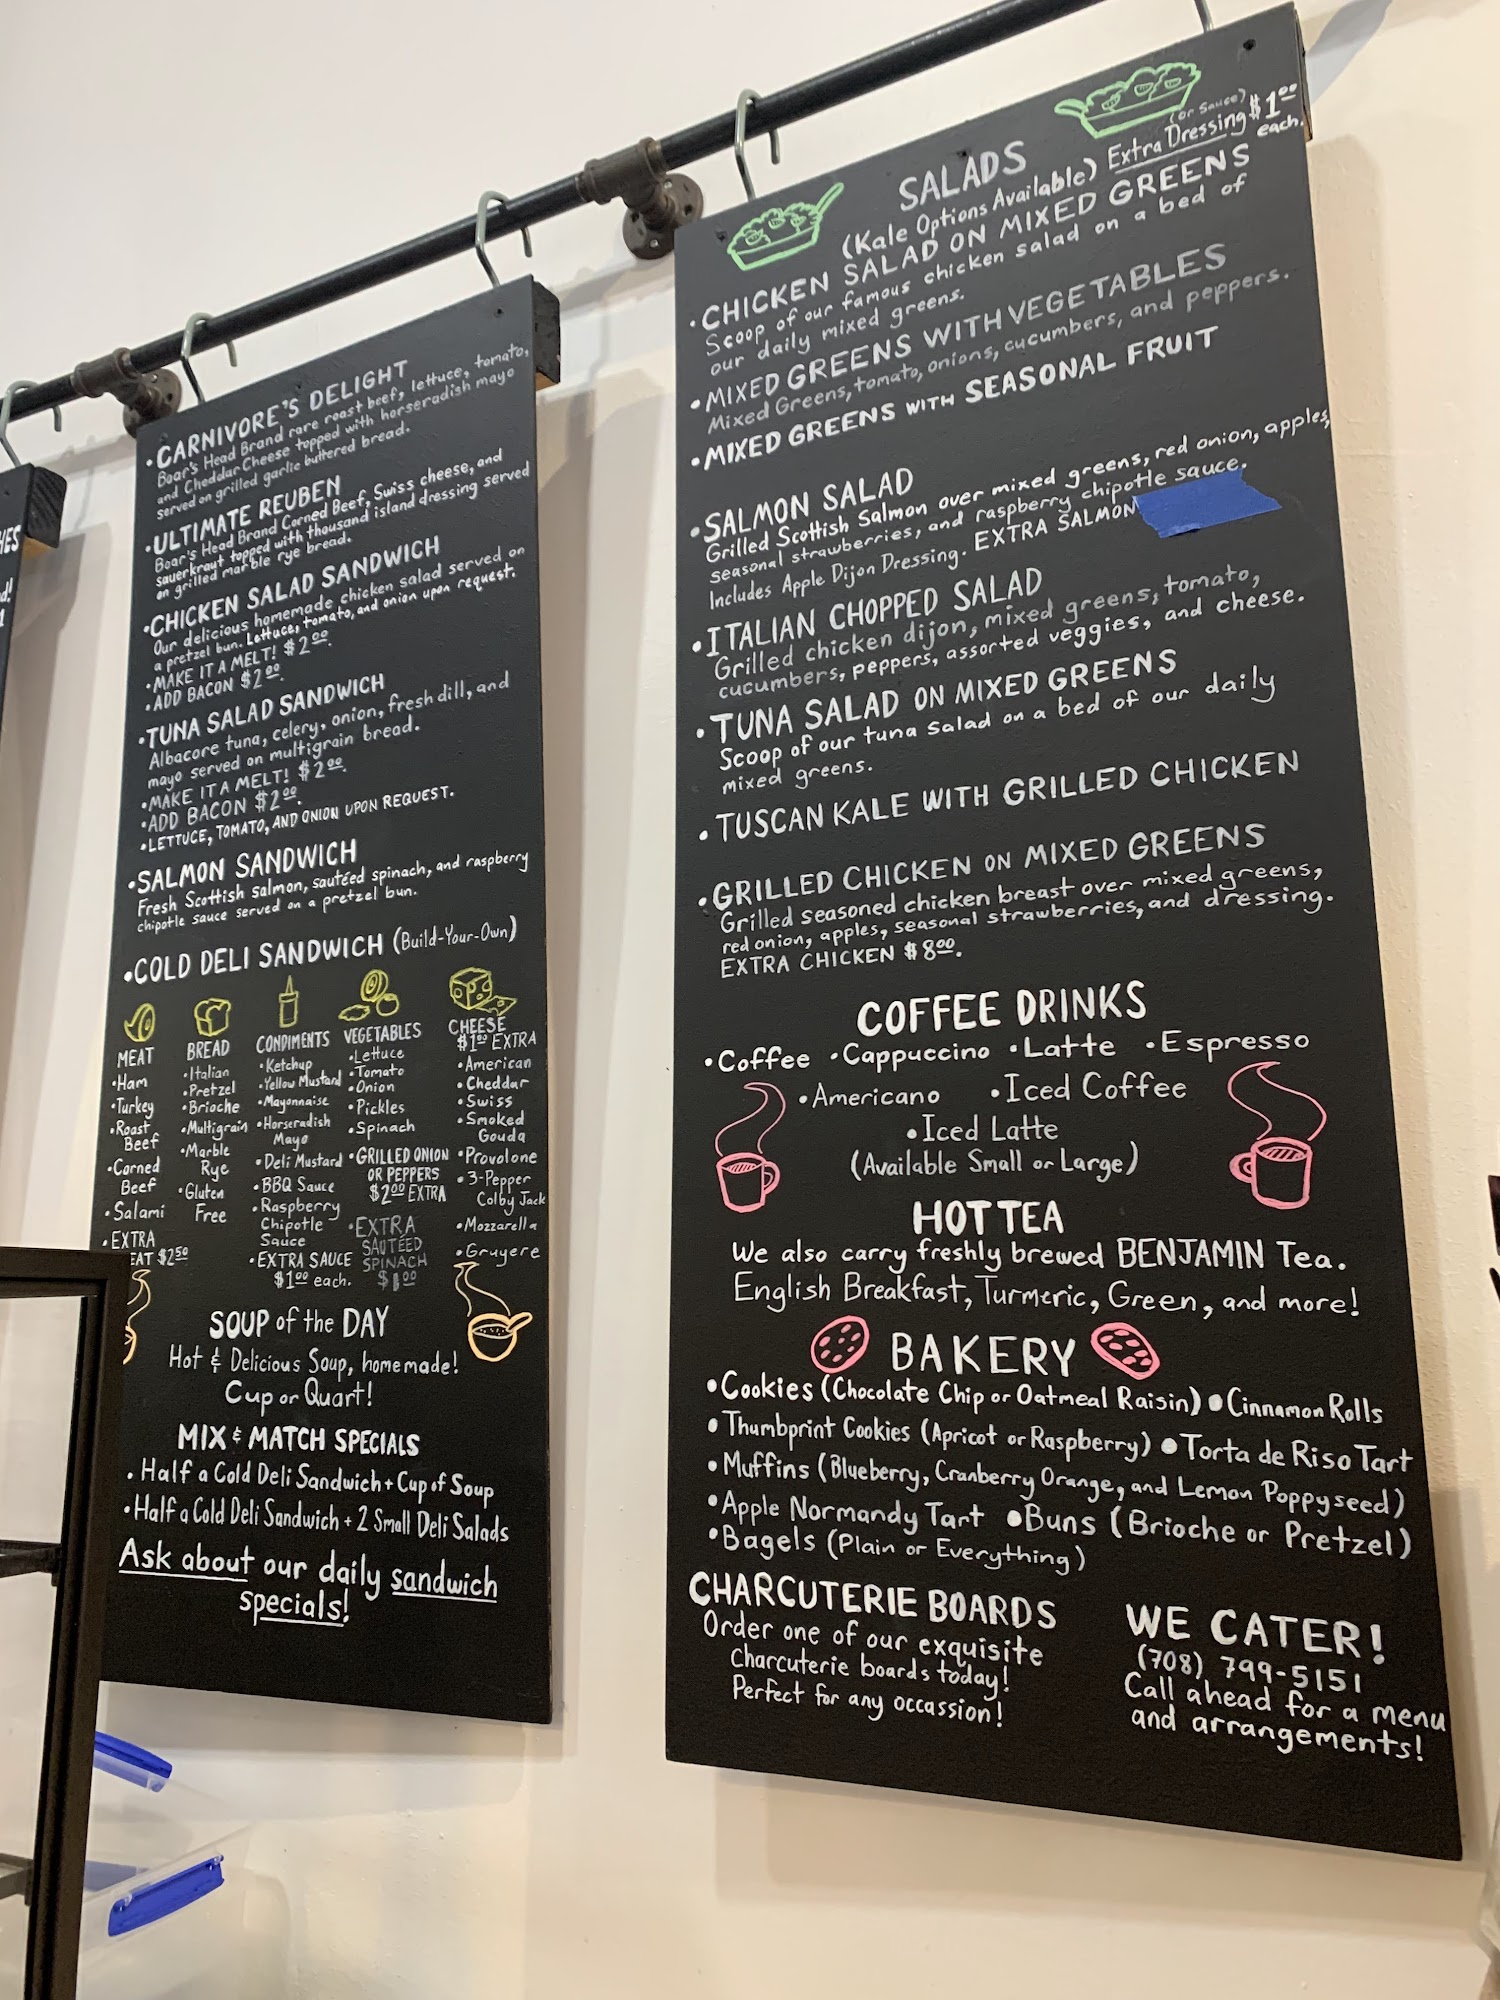 HES
CARNIVORE'S DELIGHT
Boar's Head Brand rare roast beef, lettuce, tomato,
and Cheddar Cheese topped with horseradish mayo
served on grilled garlic buttered bread.
ULTIMATE REUBEN
Boar's Head Brand Corned Beef, Swiss cheese, and
sauerkraut topped with thousand island dressing served
on grilled marble rye bread.
CHICKEN SALAD SANDWICH
Our delicious homemade chicken salad served on
a pretzel bun. Lettuce, tomato, and onion upon request.
•MAKE IT A MELT! $2.00.
•ADD BACON $2.00.
•TUNA SALAD SANDWICH
Albacore tuna, celery, onion, fresh dill, and
mayo served on multigrain bread.
•MAKE IT A MELT! $2.00.
•ADD BACON $2.00.
•LETTUCE, TOMATO, AND ONION UPON REQUEST.
•SALMON SANDWICH
Fresh Scottish salmon, sautéed spinach, and raspberry
chipotle sauce served on a pretzel bun.
•COLD DELI SANDWICH (Build-Your-Own)
MEAT
•Ham
•Turkey
•Roast
Beef
•Corned
Beef
•Salami
•EXTRA
EAT $2.50
BREAD
•Italian
•Pretzel
•Brioche
•Multigrain
•Marble
Rye
•Gluten
Free
CONDIMENTS
•Ketchup
•Yellow Mustard
•Mayonnaise
•Horseradish
Mayo
•Deli Mustard
•BBQ Sauce
•Raspberry
Chipotle
Sauce
•EXTRA SAUCE
$1.00 each.
VEGETABLES
•Lettuce
•Tomato
•Onion
•Pickles
•Spinach
•GRILLED ONION
OR PEPPERS
$2.00 EXTRA
•EXTRA
SAUTÉED
SPINACH
CHEESE
$1.00 EXTRA
•American
•Cheddar
•Swiss
•Smoked
Gouda
•Provolone
•3-Pepper
Colby Jack
•Mozzarella
•Gruyere
SOUP of the DAY
Hot & Delicious Soup, homemade!
Cup or Quart!
MIX & MATCH SPECIALS
•Half a Cold Deli Sandwich + Cup of Soup
•Half a Cold Deli Sandwich + 2 Small Deli Salads
Ask about our daily sandwich
specials!
SALADS
(Kale Options Available) Extra Dressing (or Sauce) $1.00 each.
•CHICKEN SALAD ON MIXED GREENS
Scoop of our famous chicken salad on a bed of
our daily mixed greens.
•MIXED GREENS WITH VEGETABLES
Mixed Greens, tomato, onions, cucumbers, and peppers.
•MIXED GREENS WITH SEASONAL FRUIT
•SALMON SALAD
Grilled Scottish Salmon over mixed greens, red onion, apples,
seasonal strawberries, and raspberry chipotle sauce.
Includes Apple Dijon Dressing. EXTRA SALMON
•ITALIAN CHOPPED SALAD
Grilled chicken dijon, mixed greens, tomato,
cucumbers, peppers, assorted veggies, and cheese.
•TUNA SALAD ON MIXED GREENS
Scoop of our tuna salad on a bed of our daily
mixed greens.
•TUSCAN KALE WITH GRILLED CHICKEN
•GRILLED CHICKEN ON MIXED GREENS
Grilled seasoned chicken breast over mixed greens,
red onion, apples, seasonal strawberries, and dressing.
EXTRA CHICKEN $8.00.
COFFEE DRINKS
•Coffee •Cappuccino •Latte •Espresso
•Americano •Iced Coffee
•Iced Latte
(Available Small or Large)
HOT TEA
We also carry freshly brewed BENJAMIN Tea.
English Breakfast, Turmeric, Green, and more!
BAKERY
•Cookies (Chocolate Chip or Oatmeal Raisin) •Cinnamon Rolls
•Thumbprint Cookies (Apricot or Raspberry) •Torta de Riso Tart
•Muffins (Blueberry, Cranberry Orange, and Lemon Poppyseed)
•Apple Normandy Tart •Buns (Brioche or Pretzel)
•Bagels (Plain or Everything)
CHARCUTERIE BOARDS
Order one of our exquisite
Charcuterie boards today!
Perfect for any occassion!
WE CATER!
(708) 799-5151
Call ahead for a menu
and arrangements!